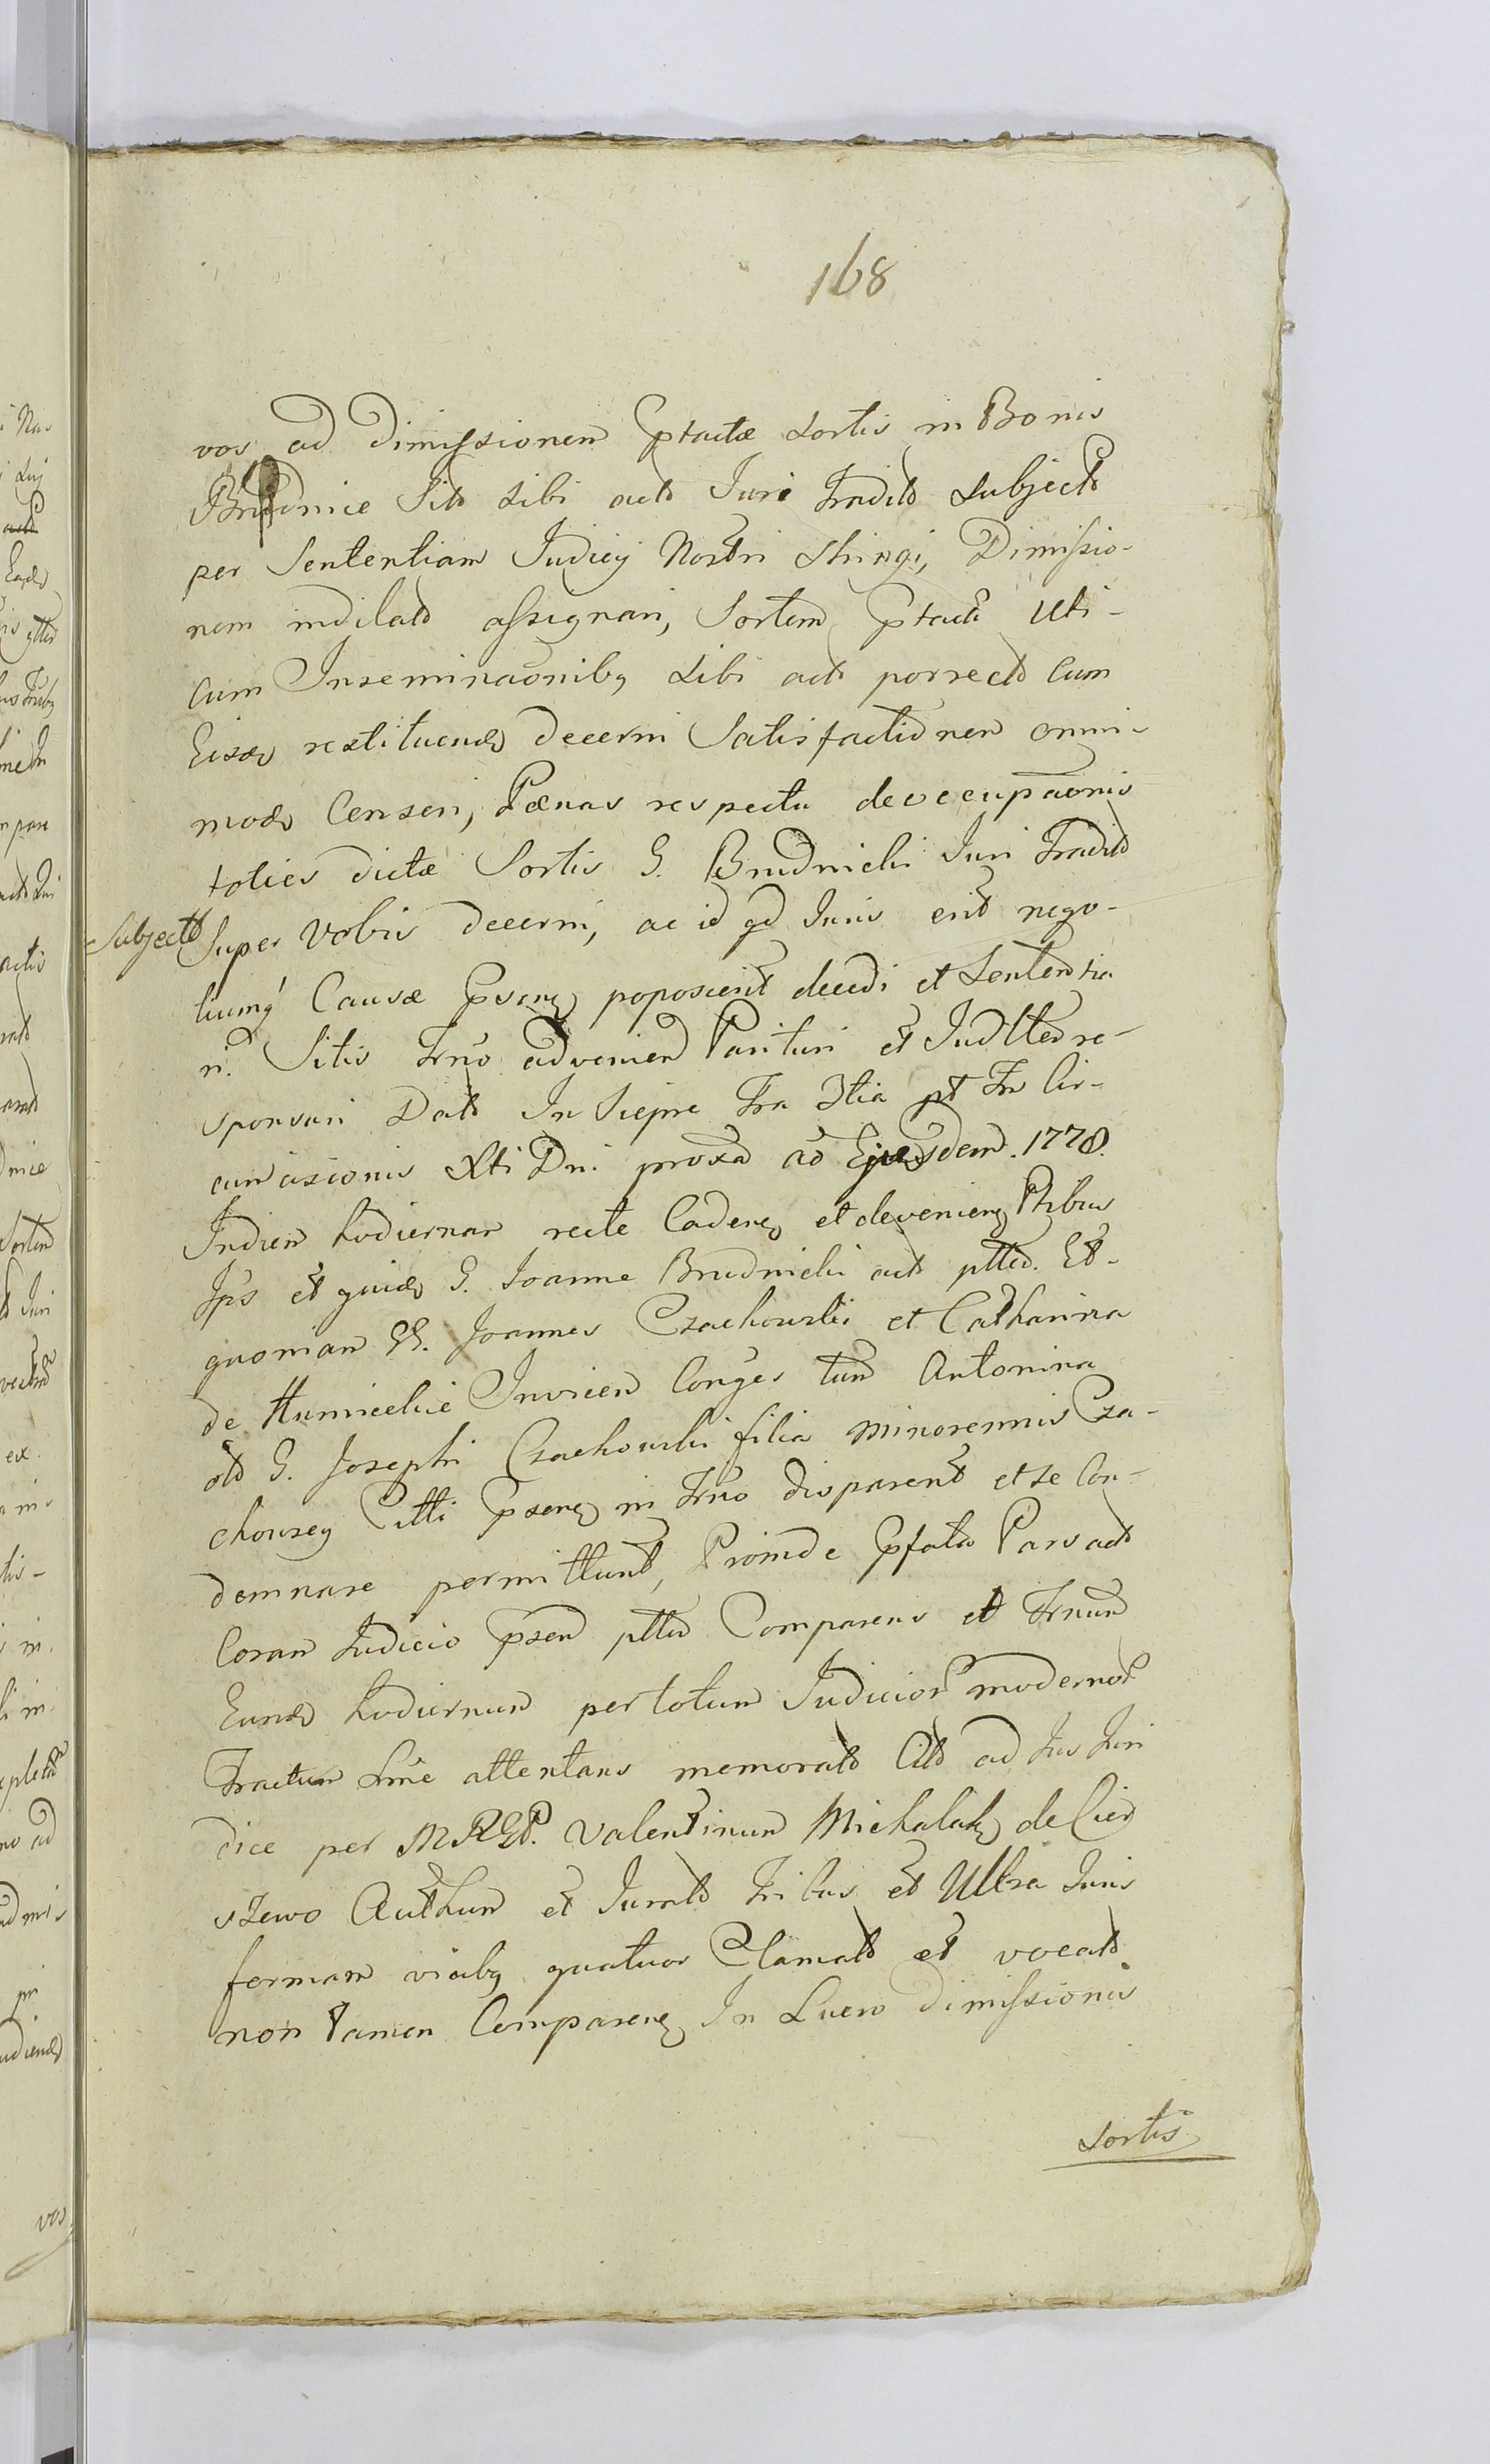 168
vos ad Dimissionem Ptactæ Sortis in Bonis
Brudnice Sito sibi acto Juri Tradito Subjecto
per Sententiam Judicij Nostri Stringi, Dimissio-
nem indilato assignari, Sortem Ptactã Uti-
cum Inseminaõnibq sibi acto porrecto Cum
Eisdo restituendo decerni Satisfactionem omni-
modo Censeri, Pœnas respectu deoccupaõnis
toties dictæ Sortis G. Brudnicki Juri Tradito
Subjecto Super Vobis decerni, ac id qd Juris erit nego-
tiumq Causæ Psens poposcerit decedi et Sententia
ri. Sitis Trno advenien Parituri et Judltter re-
sponsuri Dato In Siepre Fra 3tia pt Fm Cir-
cumcisionis Xti Dni. proxa Aõ Ejusdem. 1778.
Indiem hodiernam recte Cadens et deveniens Ptibus
Ips et quido G. Joanne Brudnicki acto plltr. Et-
quoniam GG. Joannes Czachowski et Catharina
de Humieckie Invicem Conges tum Antonina
olo G. Josephi Czachowski filia Minorennis Cza-
chowscy Citti Psens in Trno disparent et se Con-
demnare permittunt, Proinde Pfata Pars acto
Coram Judicio Psen plltr Comparens et Trnum
Eundo hodiernum per totum Judicior modernor
Tractum Lme attentans memorato Cito ad Jus Juri
dice per MRGP. Valentinum Michalak de Cier
szewo Authum et Jurato Tribus et Ultra Juris
formam vicibq quatuor Clamato et vocato
non tamen Comparens In Lucro dimissionis
Sortis